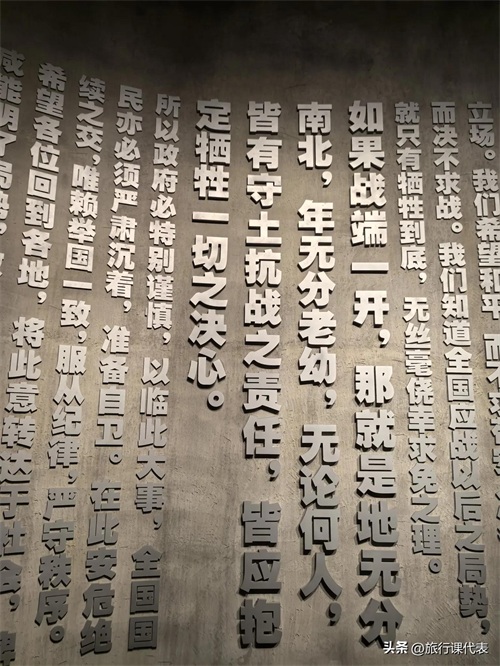 立场。我们希望和平，而不求
而决不求战。我们知道全国应战以后之局势，
就只有牺牲到底，无丝毫侥幸求免之理。
如果战端一开，那就是地无分
南北，年无分老幼，无论何人，
皆有守土抗战之责任，皆应抱
定牺牲一切之决心。
所以政府必特别谨慎，以临此大事，全国国
民亦必须严肃沉着，准备自卫。在此安危绝
续之交，唯赖举国一致，服从纪律，严守秩序。
希望各位回到各地，将此意转达于社会，
咸能明了局势，
头条 @旅行课代表